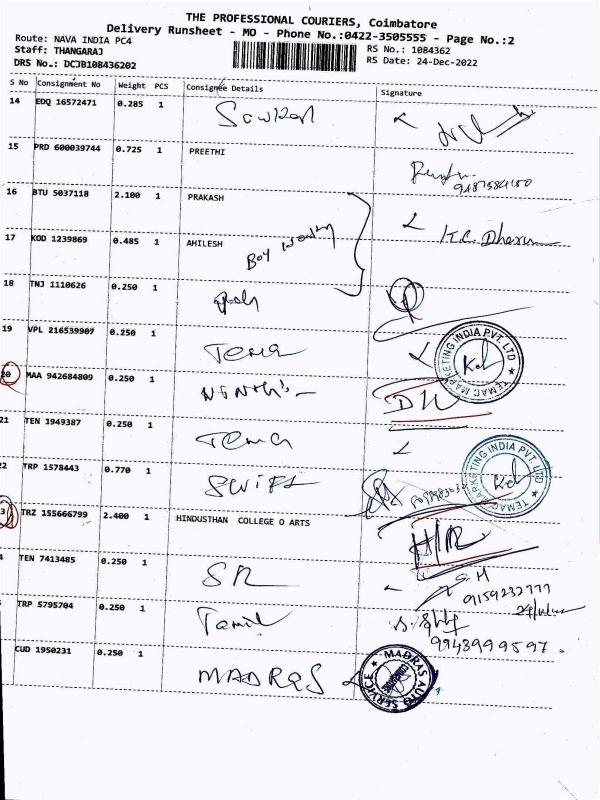 THE PROFESSIONAL COURIERS, Coimbatore
Delivery Runsheet - MO - Phone No.:0422-3505555 - Page No.:2
Route: NAVA INDIA PC4
Staff: THANGARAJ
DRS No.: DCJB108436202
RS No.: 1084362
RS Date: 24-Dec-2022
S No Consignment No Weight PCS Consignee Details Signature
14 EDQ 16572471 0.285 1
15 PRD 600039744 0.725 1 PREETHI
16 BTU 5037118 2.100 1 PRAKASH
K.C. Dharun
17 KOD 1239869 0.485 1 AHILESH
18 TNJ 1110626 0.250 1
19 VPL 216539907 0.250 1 Tema
TEMAC MARKETING INDIA PVT. LTD
20 MAA 942684809 0.250 1
21 TEN 1949387 0.250 1 Tema
22 TRP 1578443 0.770 1 SWIFT
TEMAC MARKETING INDIA PVT. LTD
3 TRZ 155666799 2.400 1 HINDUSTHAN COLLEGE O ARTS
TEN 7413485 0.250 1 SR
9159232777
TRP 5795704 0.250 1 Tamil
9948999597
CUD 1950231 0.250 1 MADRAS
MADRAS AUTO SERVICE